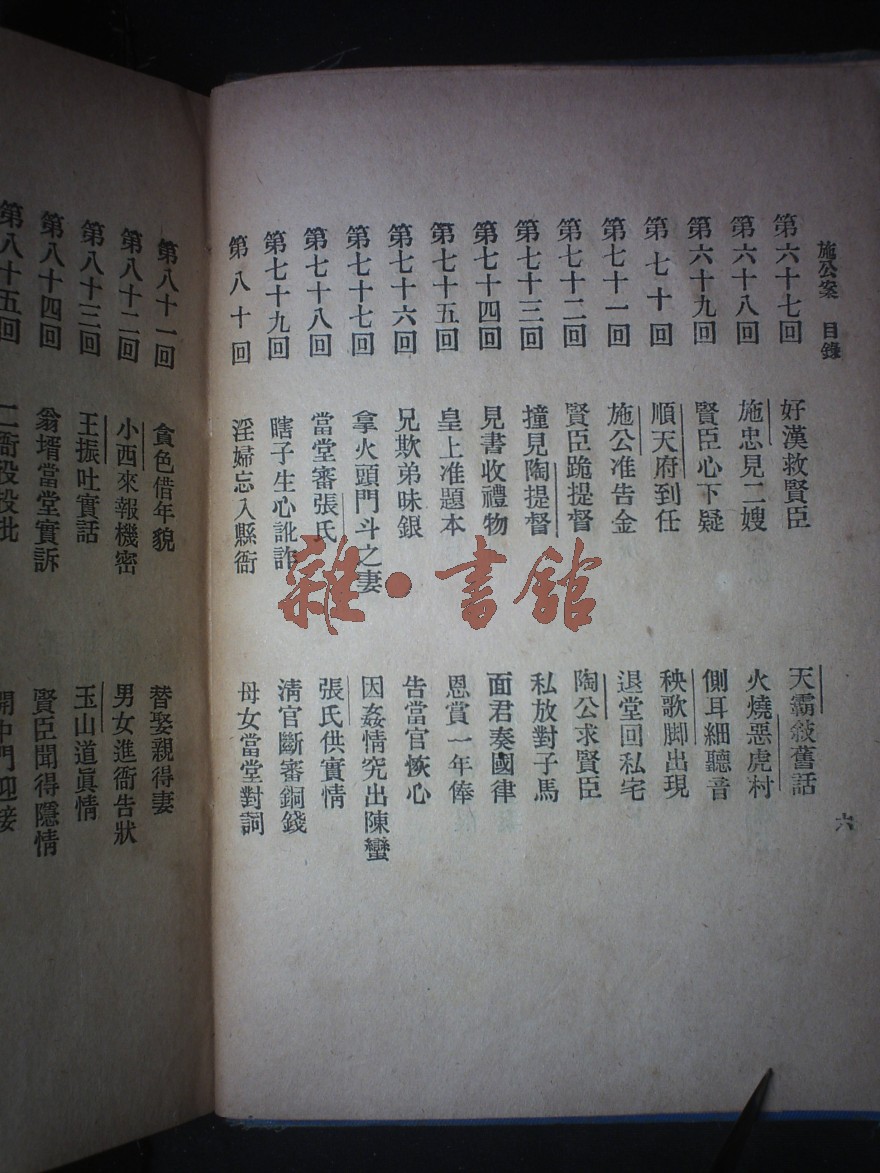 施公案　目錄
第六十七回　好漢救賢臣　天霸敍舊話
第六十八回　施忠見二嫂　火燒惡虎村
第六十九回　賢臣心下疑　側耳細聽音
第七十回　順天府到任　秧歌脚出現
第七十一回　施公准告金　退堂回私宅
第七十二回　賢臣跪提督　陶公求賢臣
第七十三回　撞見陶提督　私放對子馬
第七十四回　見書收禮物　面君奏國律
第七十五回　皇上准題本　恩賞一年俸
第七十六回　兄欺弟昧銀　告當官恢心
第七十七回　拿火頭門斗之妻　因姦情究出陳蠻
第七十八回　當堂審張氏　張氏供實情
第七十九回　瞎子生心訛詐　淸官斷審銅錢
第八十回　淫婦忘入縣衙　母女當堂對詞
六
第八十一回　貪色借年貌　替娶親得妻
第八十二回　小西來報機密　男女進衙告狀
第八十三回　王振吐實話　玉山道眞情
第八十四回　翁壻當堂實訴　賢臣聞得隱情
第八十五回　二衙役　開中門迎接
雜·書館